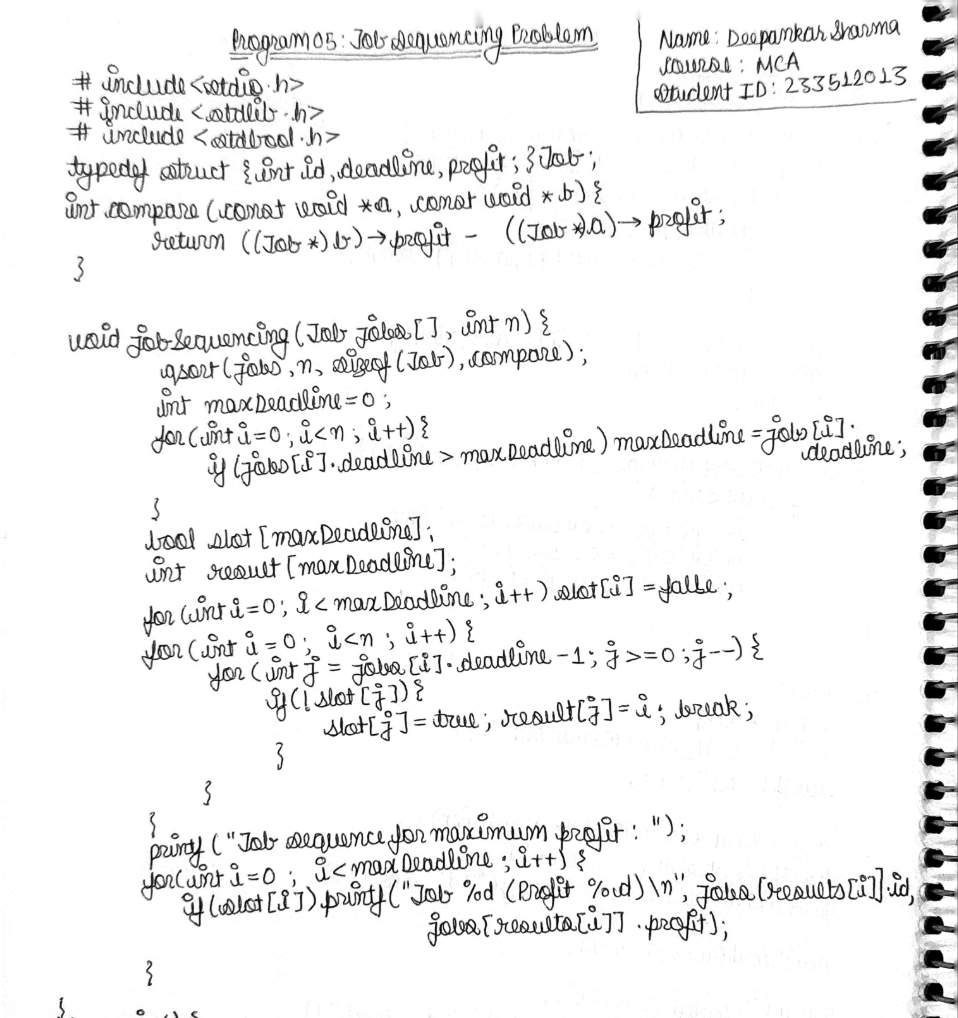 Program 05: Job Sequencing Problem
Name: Deepankar Sharma
Course: MCA
Student ID: 233512013
# include <stdio.h>
# include <stdlib.h>
# include <stdbool.h>
typedef struct { int id, deadline, profit; } Job;
int compare (const void *a, const void *b) {
return ((Job *) b) → profit - ((Job *) a) → profit;
}
void jobSequencing (Job jobs [ ], int n) {
qsort (jobs, n, sizeof (Job), compare);
int maxDeadline = 0;
for (int i=0; i<n; i++) {
if (jobs [i].deadline > maxDeadline) maxDeadline = jobs [i].
deadline;
}
bool slot [maxDeadline];
int result [maxDeadline];
for (int i=0; i < maxDeadline; i++) slot[i] = false;
for (int i = 0; i<n; i++) {
for (int j = jobs [i].deadline -1; j >=0; j--) {
if (! slot [j]) {
slot[j] = true; result[j] = i; break;
}
}
}
printf ("Job sequence for maximum profit: ");
for (int i=0; i<maxDeadline; i++) {
if (slot [i]) printf ("Job %d (Profit %d) \n", jobs [results [i]].id,
jobs [results [i]] .profit);
}
}